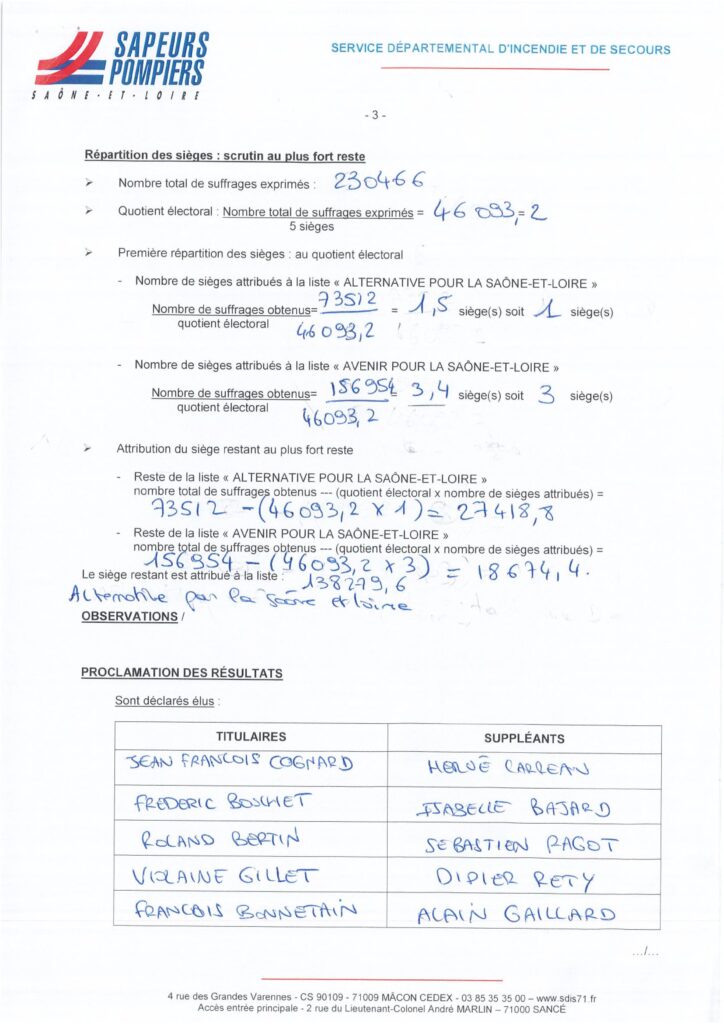 SAPEURS
POMPIERS
SAÔNE-ET-LOIRE
SERVICE DÉPARTEMENTAL D'INCENDIE ET DE SECOURS
- 3 -
Répartition des sièges : scrutin au plus fort reste
➢ Nombre total de suffrages exprimés : 230466
➢ Quotient électoral : Nombre total de suffrages exprimés = 46 093,=2
5 sièges
➢ Première répartition des sièges : au quotient électoral
- Nombre de sièges attribués à la liste « ALTERNATIVE POUR LA SAÔNE-ET-LOIRE »
Nombre de suffrages obtenus= 73512 = 1,5 siège(s) soit 1 siège(s)
quotient électoral 46093,2
- Nombre de sièges attribués à la liste « AVENIR POUR LA SAÔNE-ET-LOIRE »
Nombre de suffrages obtenus= 156954 = 3,4 siège(s) soit 3 siège(s)
quotient électoral 46093,2
➢ Attribution du siège restant au plus fort reste
- Reste de la liste « ALTERNATIVE POUR LA SAÔNE-ET-LOIRE »
nombre total de suffrages obtenus --- (quotient électoral x nombre de sièges attribués) =
73512 - (46093,2 x 1) = 27418,8
- Reste de la liste « AVENIR POUR LA SAÔNE-ET-LOIRE »
nombre total de suffrages obtenus --- (quotient électoral x nombre de sièges attribués) =
156954 - (46093,2 x 3) = 18674,4.
Le siège restant est attribué à la liste : 138279,6
Alternative pour la Saône et Loire
OBSERVATIONS /
PROCLAMATION DES RÉSULTATS
Sont déclarés élus :
TITULAIRES SUPPLÉANTS
JEAN FRANCOIS COGNARD HERVÉ CARREAU
FREDERIC BOUCHET ISABELLE BAJARD
ROLAND BERTIN SEBASTIEN RAGOT
VIOLAINE GILLET DIDIER RETY
FRANCOIS BONNETAIN ALAIN GAILLARD
.../...
4 rue des Grandes Varennes - CS 90109 - 71009 MÂCON CEDEX - 03 85 35 35 00 – www.sdis71.fr
Accès entrée principale - 2 rue du Lieutenant-Colonel André MARLIN – 71000 SANCÉ